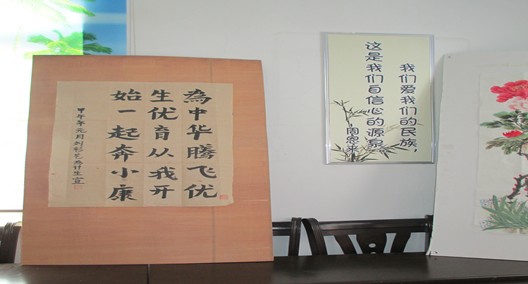 為中华腾飞优
生优育从我开
始一起奔小康
甲午年元月刘
我们爱我们的民族，
这是我们自信心的源泉。
—周恩来